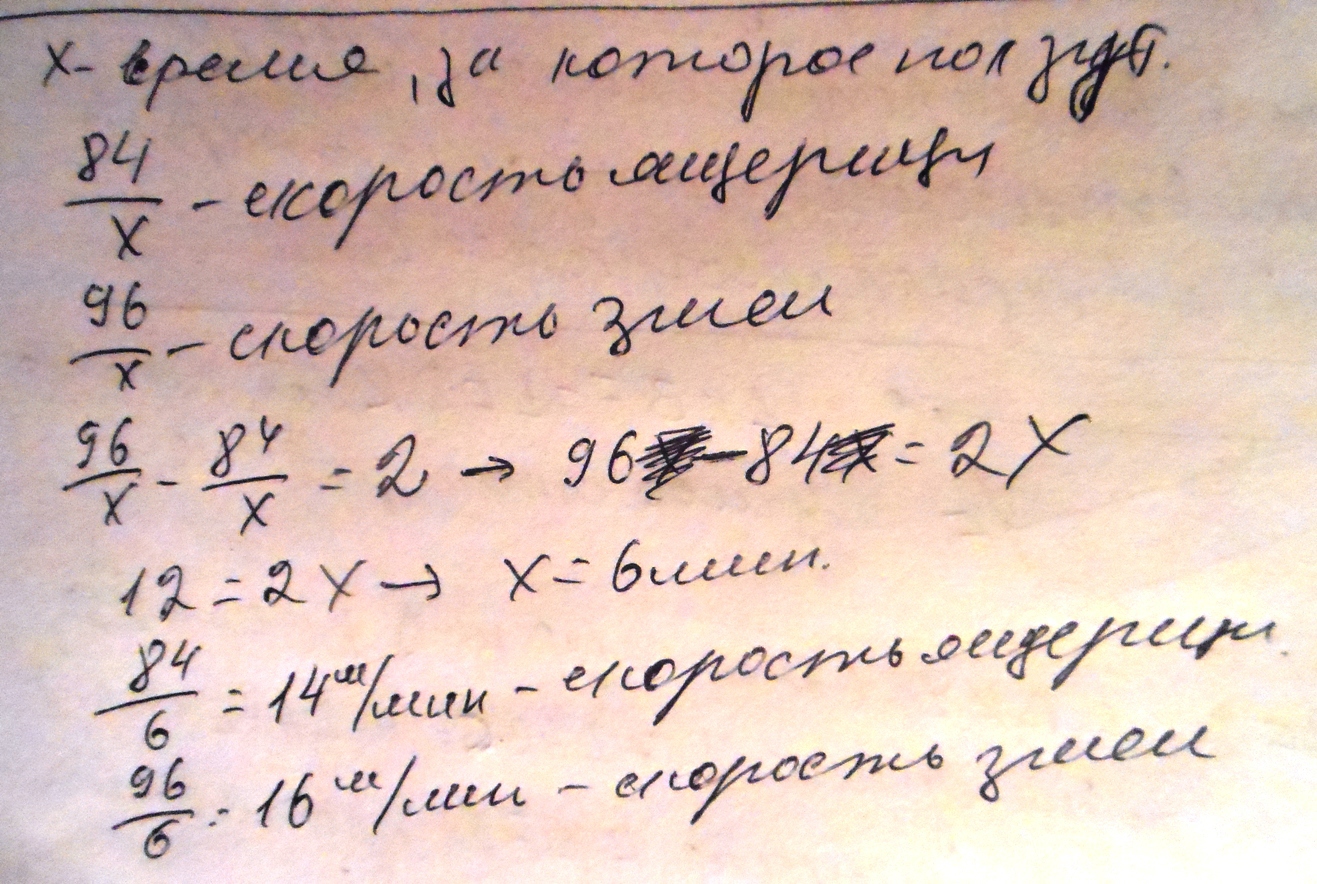 x - время, за которое ползут.
84/x - скорость ящерицы
96/x - скорость змеи
96/x - 84/x = 2 → 96 - 84 = 2x
12 = 2x → x = 6 мин.
84/6 = 14 м/мин - скорость ящерицы
96/6 = 16 м/мин - скорость змеи